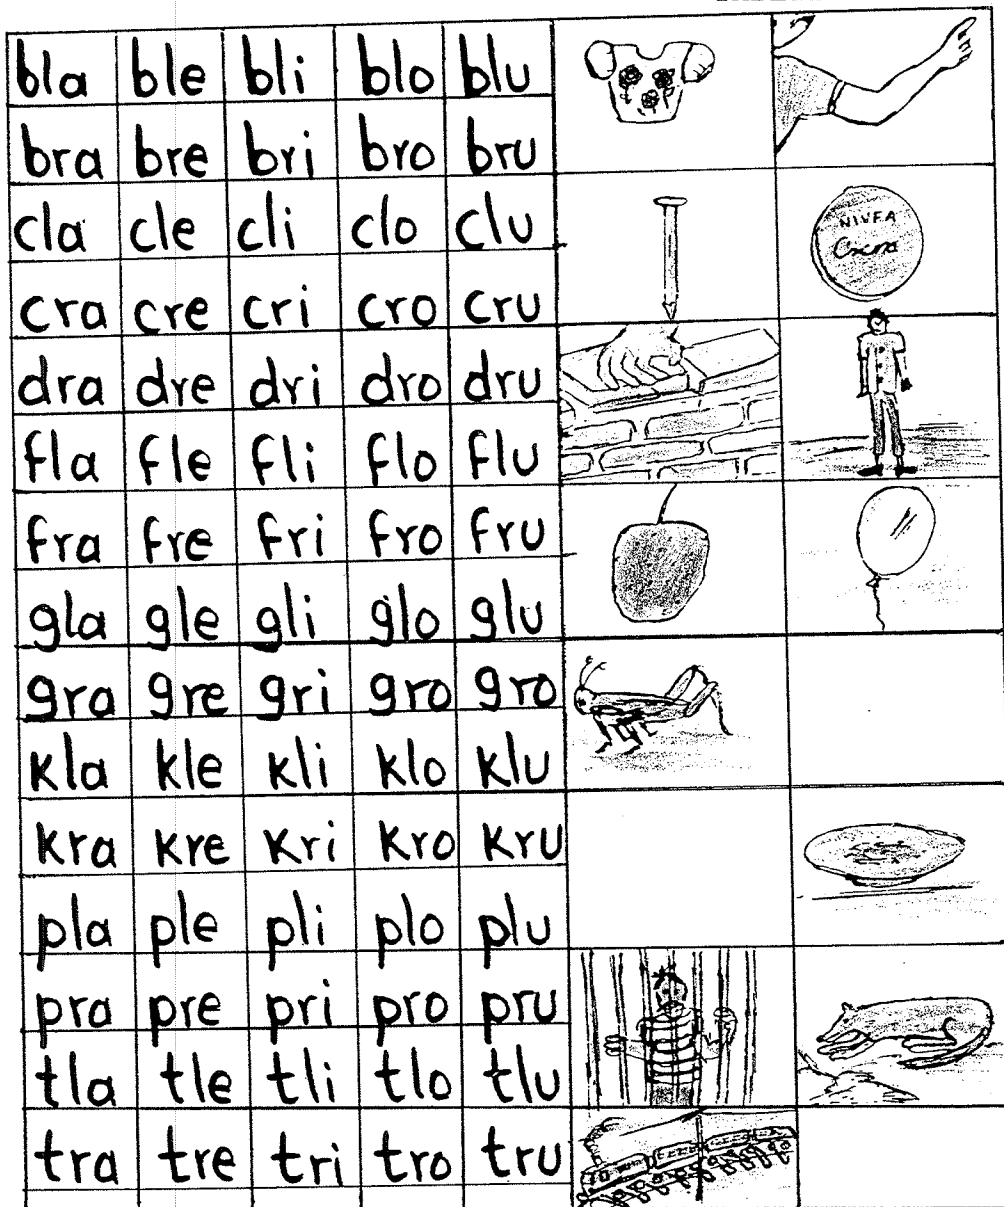 bla ble bli blo blu
bra bre bri bro bru
cla cle cli clo clu
NIVEA
Crema
cra cre cri cro cru
dra dre dri dro dru
fla fle fli flo flu
fra fre fri fro fru
gla gle gli glo glu
gra gre gri gro gro
kla kle kli klo klu
kra kre kri kro kru
pla ple pli plo plu
pra pre pri pro pru
tla tle tli tlo tlu
tra tre tri tro tru